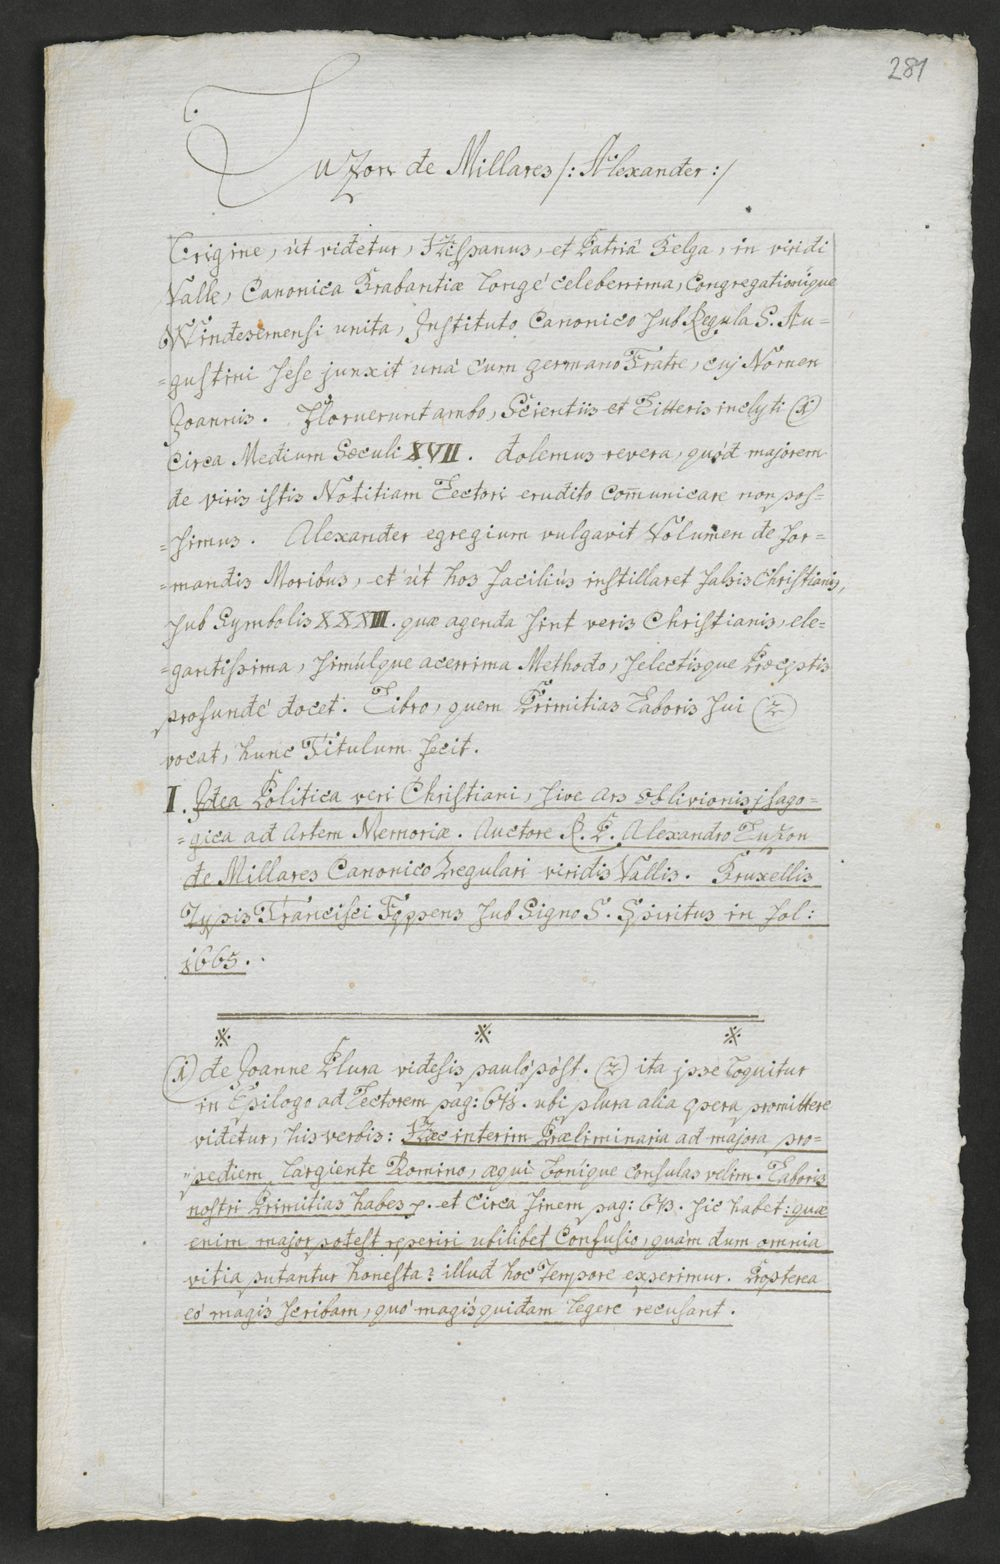 281
Luzon de Millares /: Alexander :/
Origine, ùt videtur, Hispanus, et Patriâ Belga, in viridi
Valle, Canonica Brabantiæ longè celeberrima, Congregationique
Windesemensi unita, Instituto Canonico sub Regula S. Au=
=gustini sese junxit unà cum germano Fratre, cuj Nomen
Joannis. Floruerunt ambo, Scientiis et Litteris inclyti (1)
Circa Medium Sæculi XVII. dolemus revera, quòd majorem
de viris istis Notitiam Lectori erudito com̄unicare non pos=
=simus. Alexander egregium vulgavit Volumen de for=
=mandis Moribus, et ùt hos faciliùs instillaret falsis Christianis,
sub Symbolis XXXIII. quæ agenda sint veris Christianis, ele=
=gantissima, simùlque acerrima Methodo, selectisque Præceptis
profundè docet. Libro, quem Primitias Laboris sui (2)
vocat, hunc Titulum fecit.
I. Idea Politica veri Christiani, sive Ars oblivionis jsago=
=gica ad Artem Memoriæ. Auctore R. P. Alexandro Luzon
de Millares Canonico Regulari viridis Vallis. Bruxellis
Typis Francisci Foppens sub Signo S. Spiritus in fol:
1665.
(1) de Joanne Plura videsis paulò pòst. (2) ita jpse loquitur
in Epilogo ad Lectorem pag: 673. ubi plura alia opera promittere
videtur, his verbis: Hæc interim Præliminaria ad majora pro=
=pediem, largiente Domino, æqui bonique consulas velim. Laboris
nostri Primitias habes p. et circa finem pag: 673. sic habet: quæ
enim major potest reperiri ubilibet Confusio, quàm dum omnia
vitia putantur honesta? illud hoc Tempore experimur. Propterea
eò magìs scribam, quò magìs quidam legere recusant.